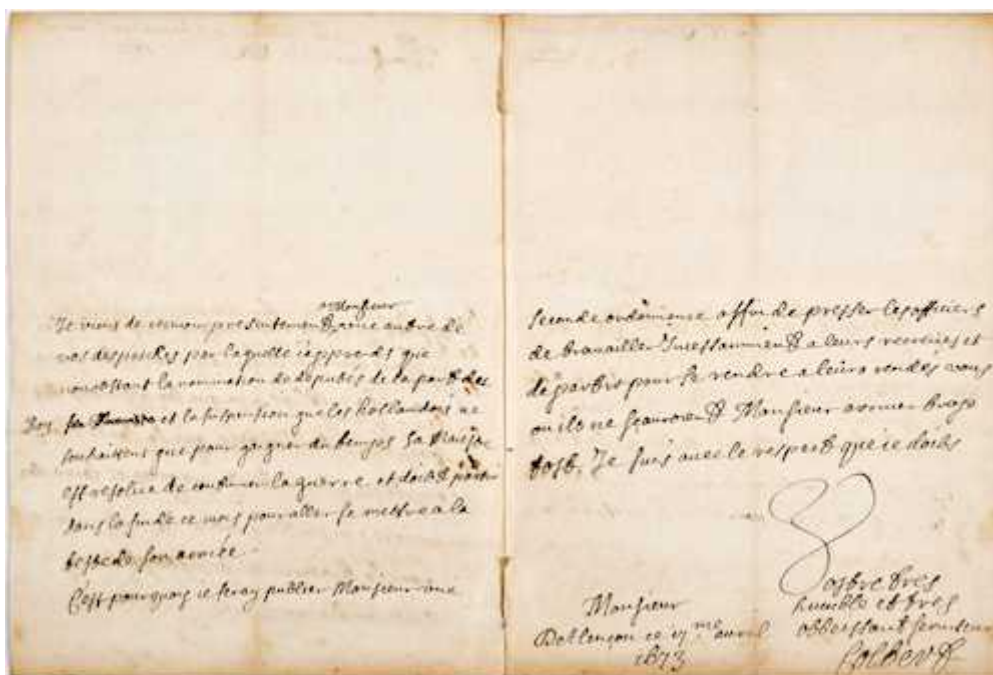 Monsieur
Je viens de recevoir presentement une autre de
vos despesches par laquelle j'apprends que
nonobstant la nomination de deputés de la part des
Roy et la suspension que les hollandois ne
souhaittent que pour gaigner du temps Sa Majesté
est resolue de continuer la guerre et doibt partir
dans la fin de ce mois pour aller se mettre a la
teste de son armée
C'est pourquoy ie feray publier Monsieur une
seconde ordonnance affin de presser les officiers
de travailler Incessamment a leurs recrües et
de partir pour se rendre a leurs rendés vous
ou ils ne sçauroient Monsieur arriver trop
tost. Je suis avec le respect que ie doibs
Vostre tres
humble et tres
obbeissant serviteur
Colbert
Monsieur
D'allençon ce me avril
1673